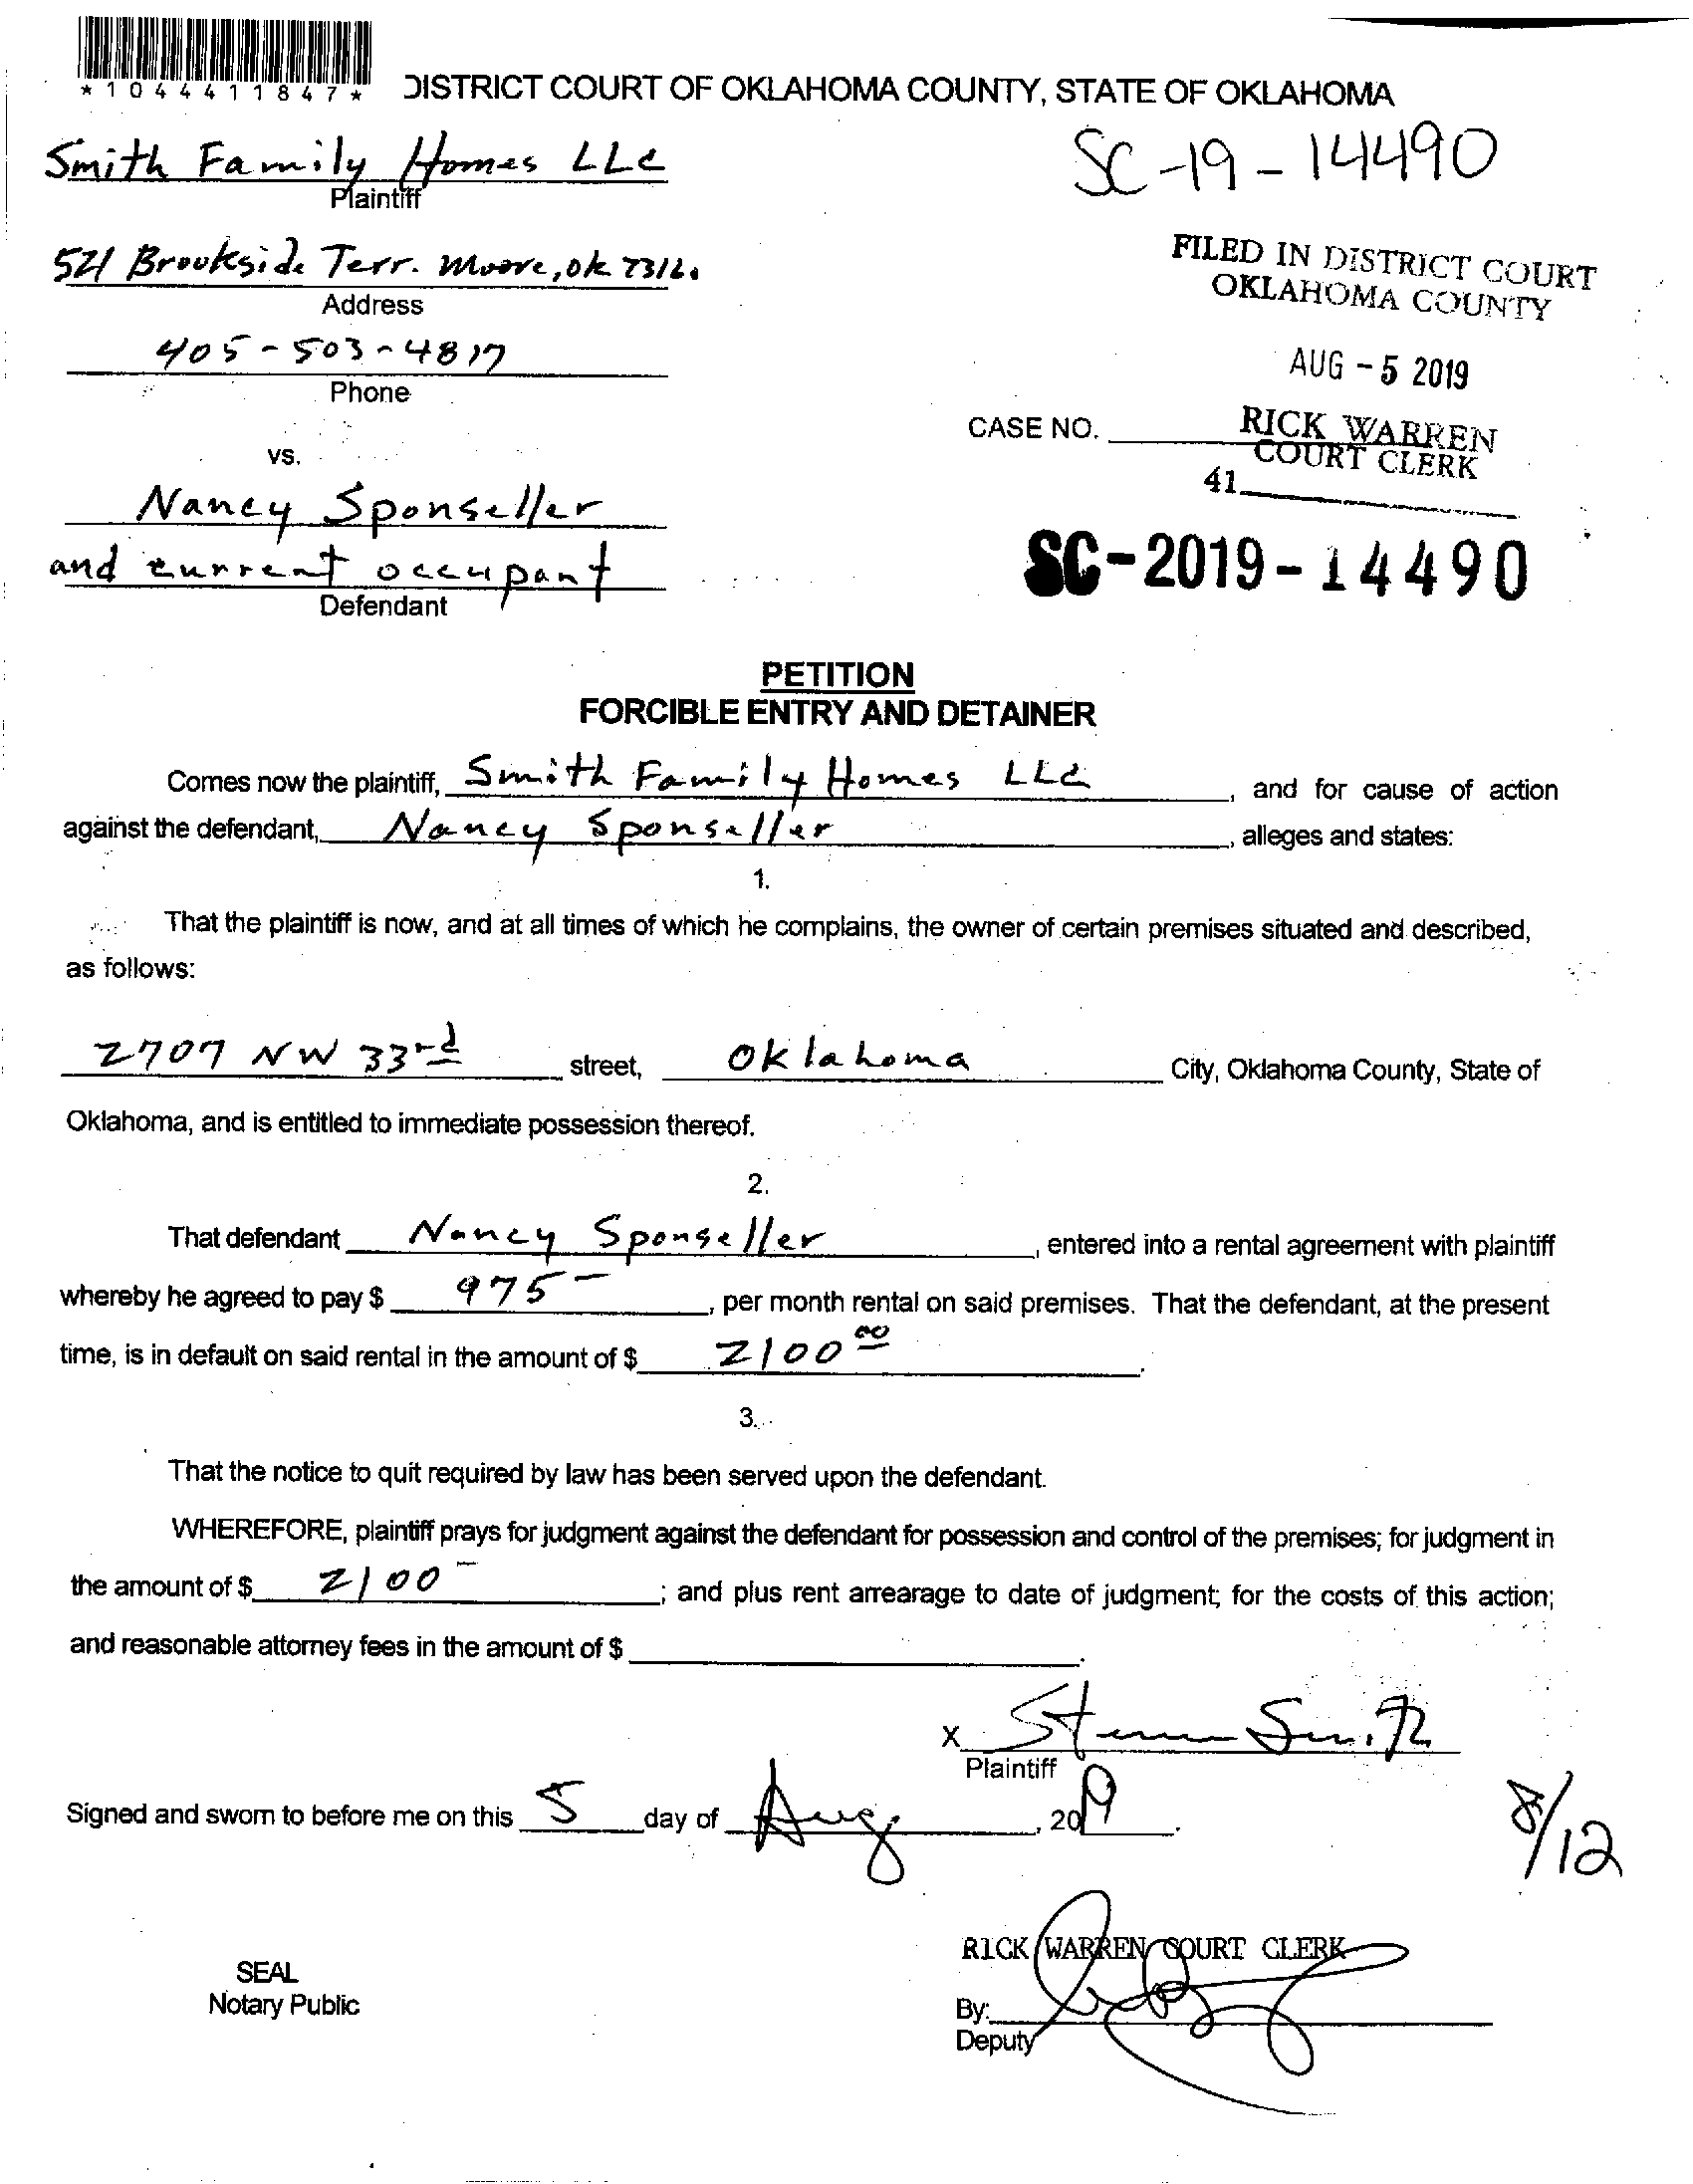 *1044411847*
DISTRICT COURT OF OKLAHOMA COUNTY, STATE OF OKLAHOMA
Smith Family Homes LLC
Plaintiff
SC-19-14490
521 Brookside Terr. Moore, ok 73160
Address
FILED IN DISTRICT COURT
OKLAHOMA COUNTY
405-503-4817
Phone
AUG -5 2019
CASE NO.
RICK WARREN
COURT CLERK
41
vs.
Nancy Sponseller
and current occupant
Defendant
SC-2019-14490
PETITION
FORCIBLE ENTRY AND DETAINER
Comes now the plaintiff, Smith Family Homes LLC, and for cause of action
against the defendant, Nancy Sponseller, alleges and states:
1.
That the plaintiff is now, and at all times of which he complains, the owner of certain premises situated and described,
as follows:
2707 NW 33rd street, Oklahoma City, Oklahoma County, State of
Oklahoma, and is entitled to immediate possession thereof.
2.
That defendant Nancy Sponseller, entered into a rental agreement with plaintiff
whereby he agreed to pay $ 975-, per month rental on said premises. That the defendant, at the present
time, is in default on said rental in the amount of $ 2100 00.
3.
That the notice to quit required by law has been served upon the defendant.
WHEREFORE, plaintiff prays for judgment against the defendant for possession and control of the premises; for judgment in
the amount of $ 2100-; and plus rent arrearage to date of judgment; for the costs of this action;
and reasonable attorney fees in the amount of $ .
X Smith
Plaintiff
Signed and sworn to before me on this 5 day of Aug, 2019.
8/12
RICK WARREN COURT CLERK
SEAL
Notary Public
By:
Deputy